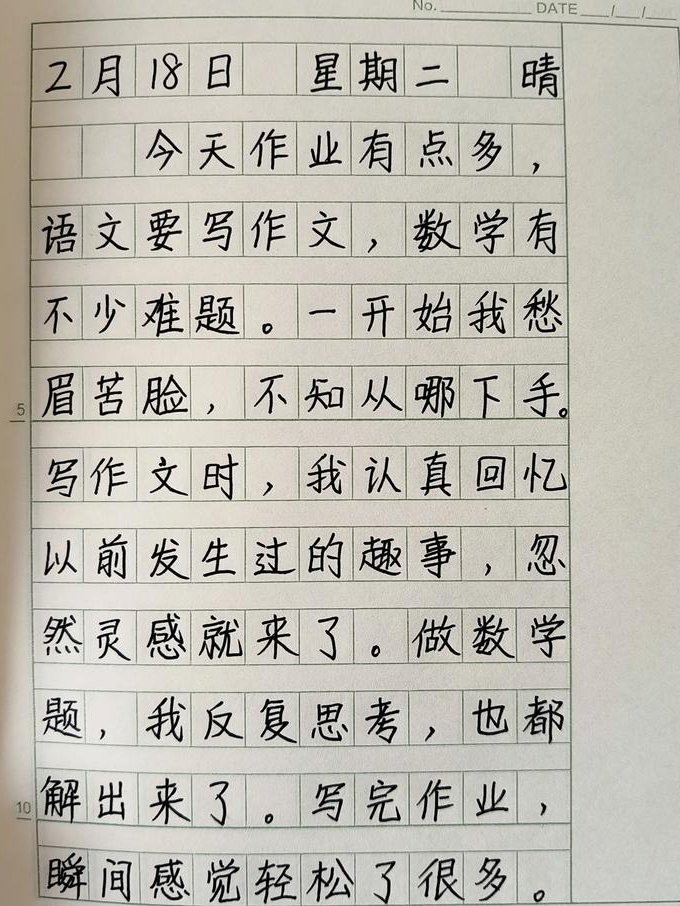 No. DATE / /
2月18日 星期二 晴
今天作业有点多，
语文要写作文，数学有
不少难题。一开始我愁
5 眉苦脸，不知从哪下手。
写作文时，我认真回忆
以前发生过的趣事，忽
然灵感就来了。做数学
题，我反复思考，也都
10 解出来了。写完作业，
瞬间感觉轻松了很多。